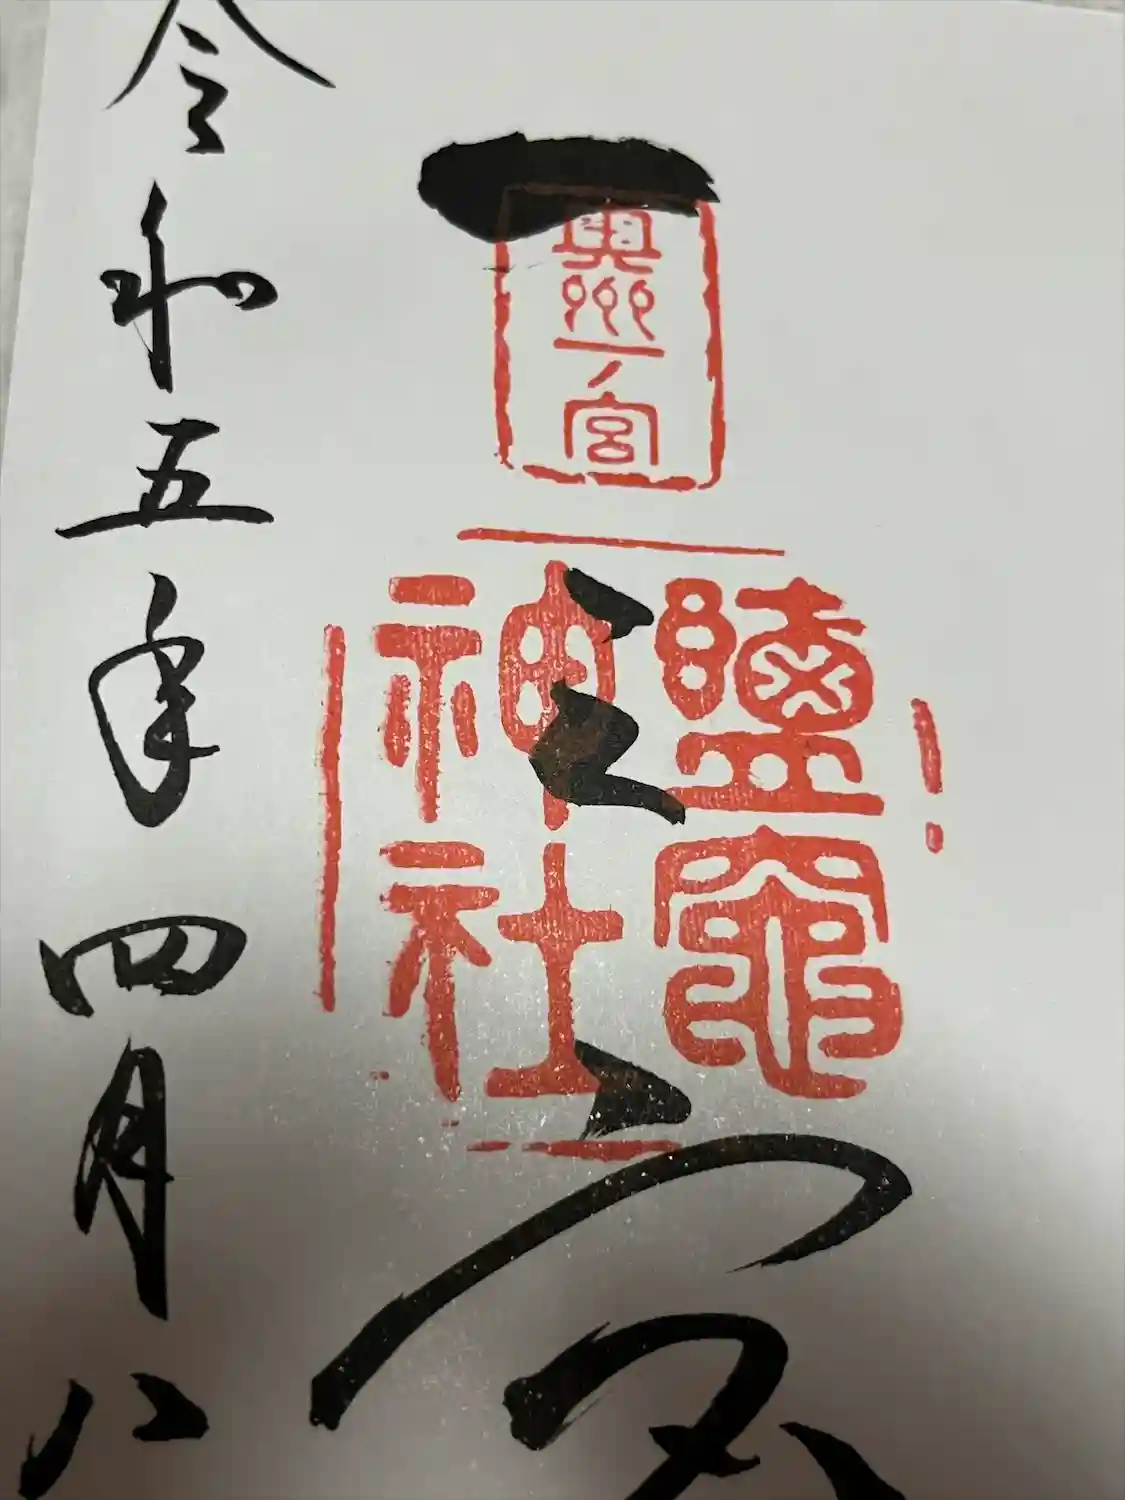 奥州一ノ宮
鹽竈
神社
一之宮
令和五年四月八